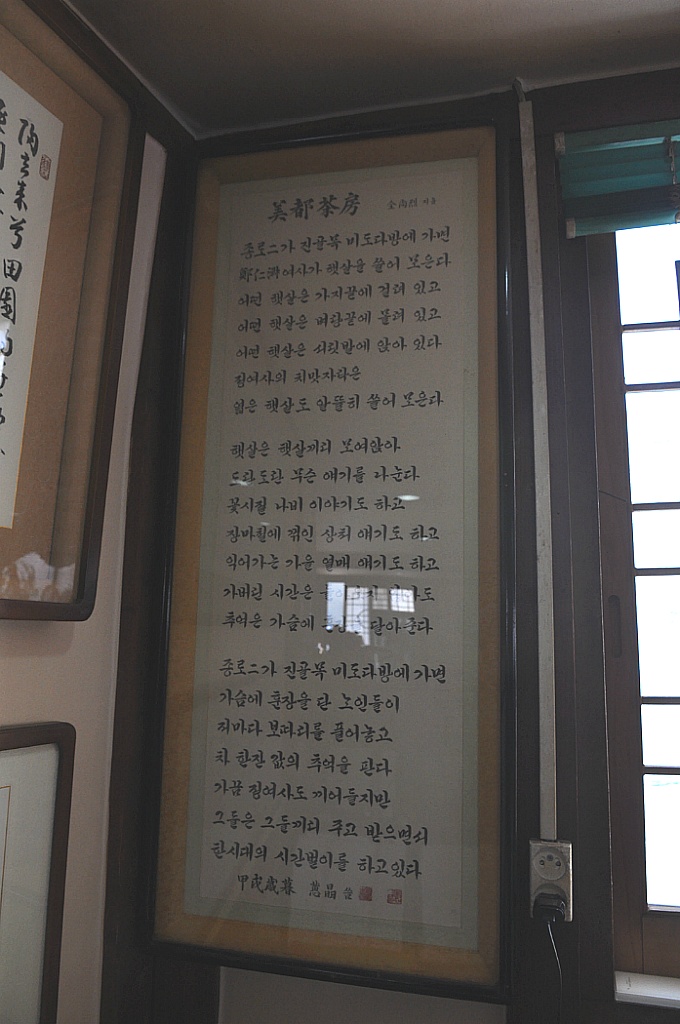 歸去来兮田園
美都茶房 全尚烈 지음
종로二가 진골목 미도다방에 가면
鄭仁淑여사가 햇살을 쓸어 모은다
어떤 햇살은 가지끝에 걸려 있고
어떤 햇살은 벼랑끝에 몰려 있고
어떤 햇살은 서릿발에 앉아 있다
정여사의 치맛자락은
엷은 햇살도 알뜰히 쓸어 모은다
햇살은 햇살끼리 모여앉아
도란도란 무슨 얘기를 나눈다
꽃시절 나비 이야기도 하고
장마철에 꺾인 상처 얘기도 하고
익어가는 가을 열매 얘기도 하고
가버린 시간은
추억은 가슴에 훈장을 달아준다
종로二가 진골목 미도다방에 가면
가슴에 훈장을 단 노인들이
저마다 보따리를 풀어놓고
차 한잔 값의 추억을 판다
가끔 정여사도 끼어들지만
그들은 그들끼리 주고 받으면서
한시대의 시간벌이를 하고있다
甲戌歲暮